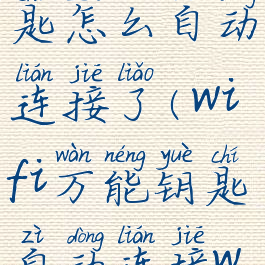 匙怎么自动
lián jiē liǎo
连接了(wi
wàn néng yuè chí
fi万能钥匙
zì dòng lián jiē
自动连接w